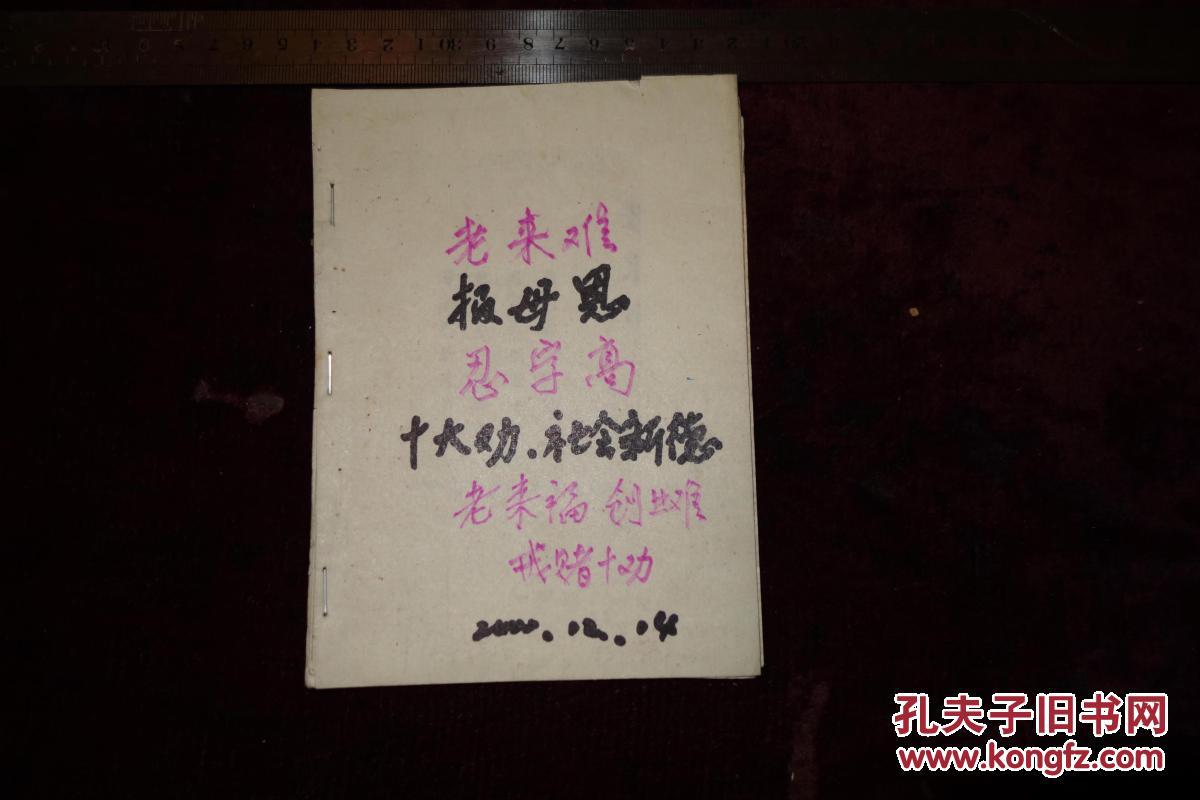 老来难
报母恩
忍字高
十大劝、社会新德
老来福 创业难
戒赌十劝
2000.12.14
孔夫子旧书网
www.kongfz.com